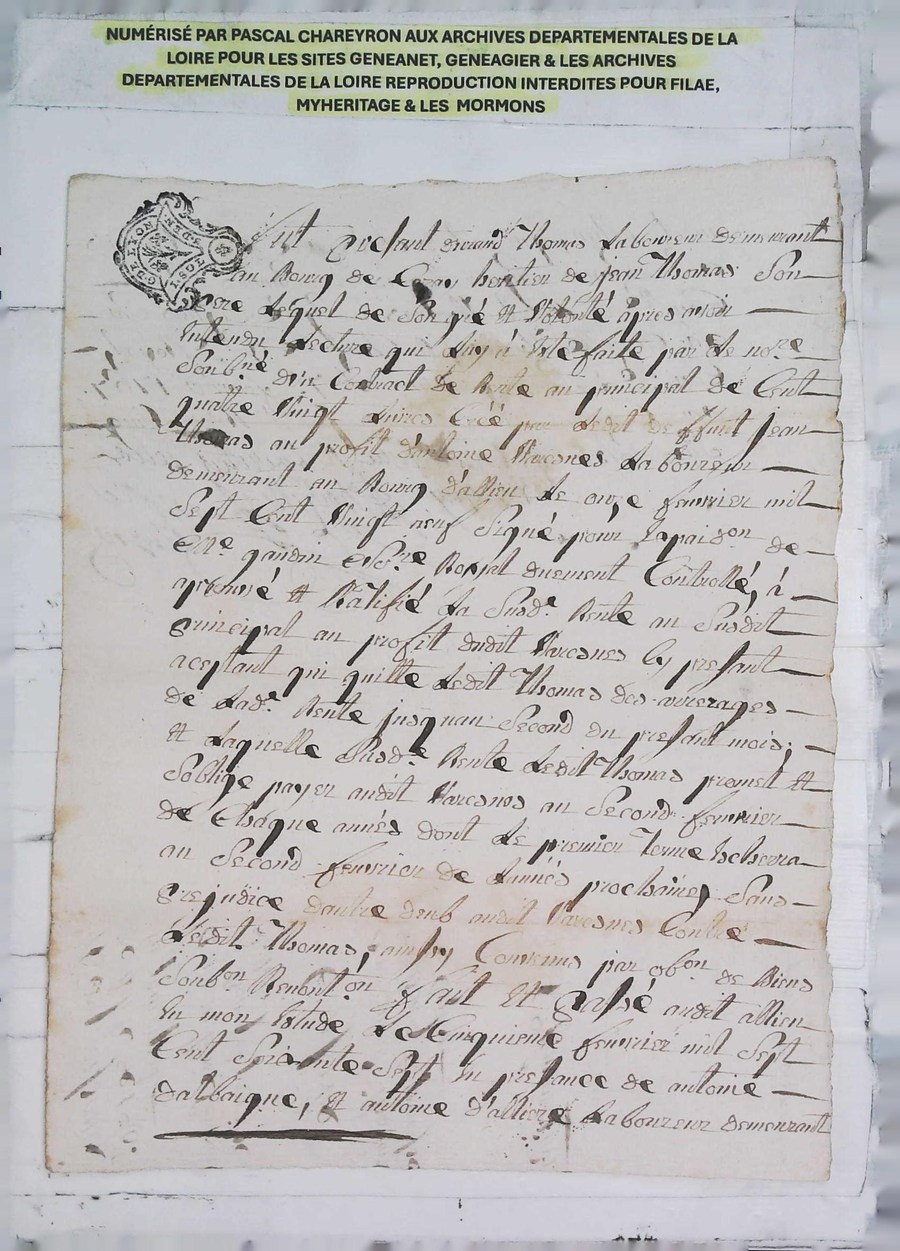 NUMÉRISÉ PAR PASCAL CHAREYRON AUX ARCHIVES DEPARTEMENTALES DE LA
LOIRE POUR LES SITES GENEANET, GENEAGIER & LES ARCHIVES
DEPARTEMENTALES DE LA LOIRE REPRODUCTION INTERDITES POUR FILAE,
MYHERITAGE & LES MORMONS
fut presant Thomas Laboureur demeurant
au Bourg de heritier de jean Thomas Son
Pere Lequel de Son gré et Volonté apres avoir
Entendu Lecture qui Luy a Esté faite par Le no.re
Soubné d'un Contract de Rente au principal de Cent
quatre Vingt Livres Créé par Ledit deffunt jean
Thomas au profit d'antoine Varesnes Laboureur
demeurant au Bourg d'allieu Le onze fevrier mil
Sept Cent Vingt neuf Signé pour Expedition de
M.e gaudin No.re Royal duement Controllé, à
aprouvé et Ratifié La Susd.e Rente au Susdit
principal au profit dudit Varesnes Cy presant
aceptant qui quitte Ledit Thomas des arrerages
de Lad.e Rente jusquau Second du presant mois,
et Laquelle Susd.e Rente Ledit Thomas promet et
Soblige payer audit Varesnes au Second fevrier
de Chaque année dont Le premier Terme Echerra
au Second fevrier de Lannée prochaine, Sans
prejudice dautre deub audit Varesnes Contre
Ledit Thomas, ainsy Convenus par obon de Biens
Soub.on Renont.on fait Et Passé audit allieu
En mon Etude Le Cinquieme fevrier mil Sept
Cent Soixante Sept En presance de antoine
dalbaigne, et antoine d'alliere Laboureur demeurant